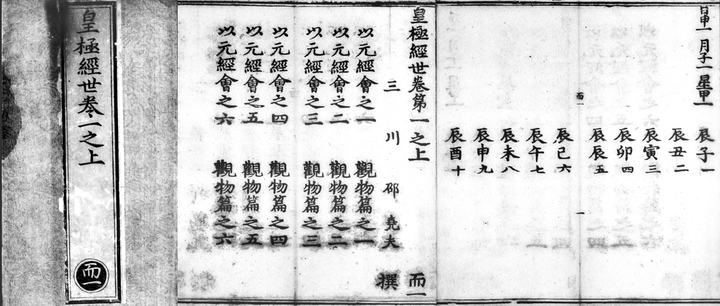 皇極經世卷一之上
而一
皇極經世卷第一之上 而一
三川 邵堯夫 撰
以元經會之一 觀物篇之一
以元經會之二 觀物篇之二
以元經會之三 觀物篇之三
以元經會之四 觀物篇之四
以元經會之五 觀物篇之五
以元經會之六 觀物篇之六
日甲一 月子一 星甲一
辰子一
辰丑二
辰寅三
辰卯四
辰辰五
而 一
辰巳六
辰午七
辰未八
辰申九
辰酉十